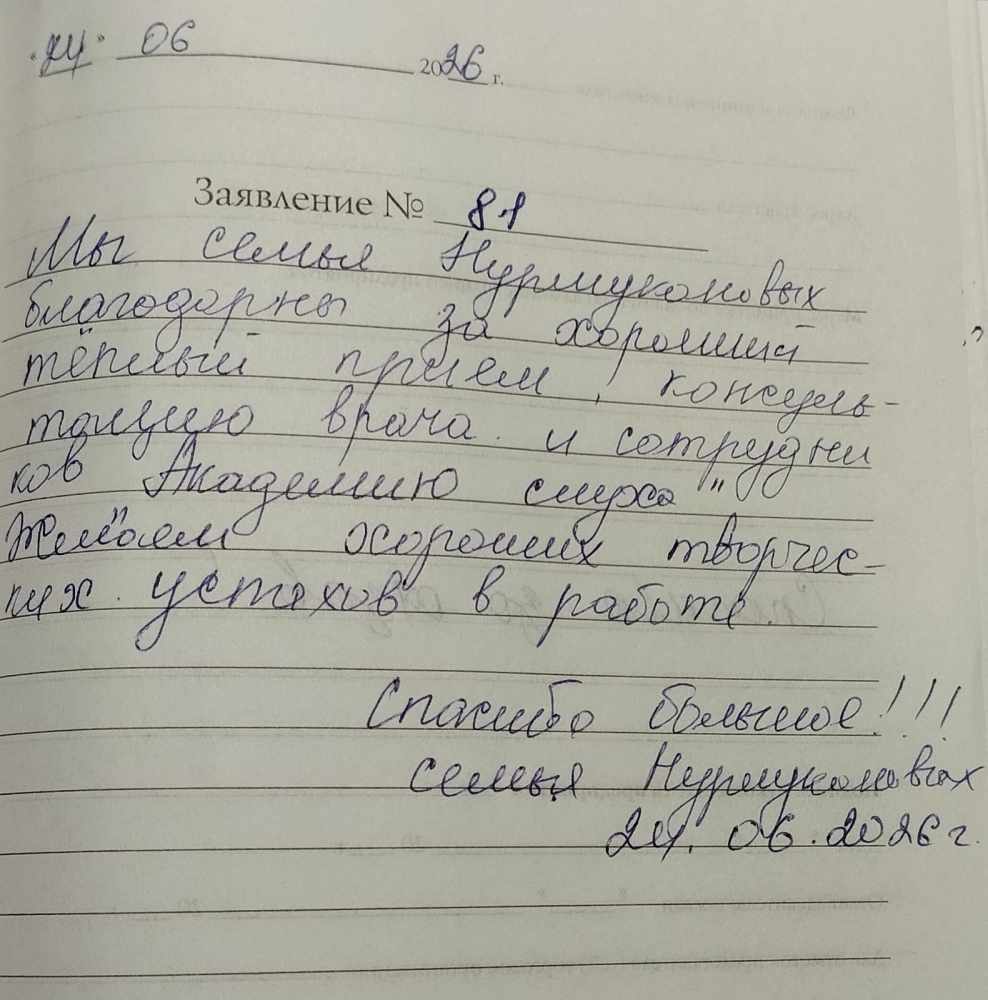 «24» 06 2026 г.
Заявление № 81
Мы семья Нурмукановых
благодарны за хороший
тёплый приём, консуль-
тацию врача и сотрудни
ков "Академию слуха"
Желаем хороших творчес-
ких успехов в работе.
Спасибо большое!!!
семья Нурмукановых
24. 06. 2026 г.